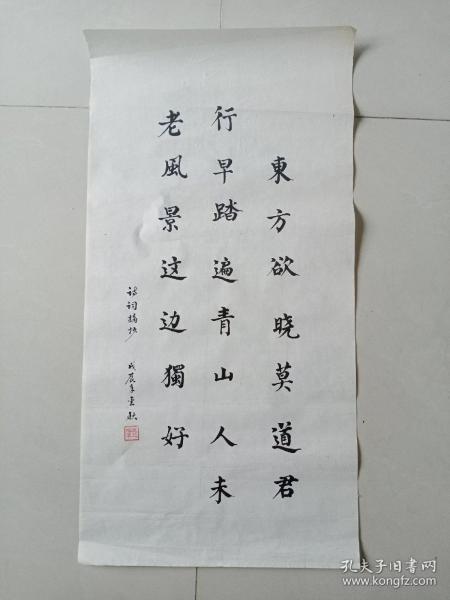 東方欲晓莫道君
行早踏遍青山人未
老風景这边獨好
诗词摘抄 戊辰年
孔夫子旧书网
www.kongfz.com